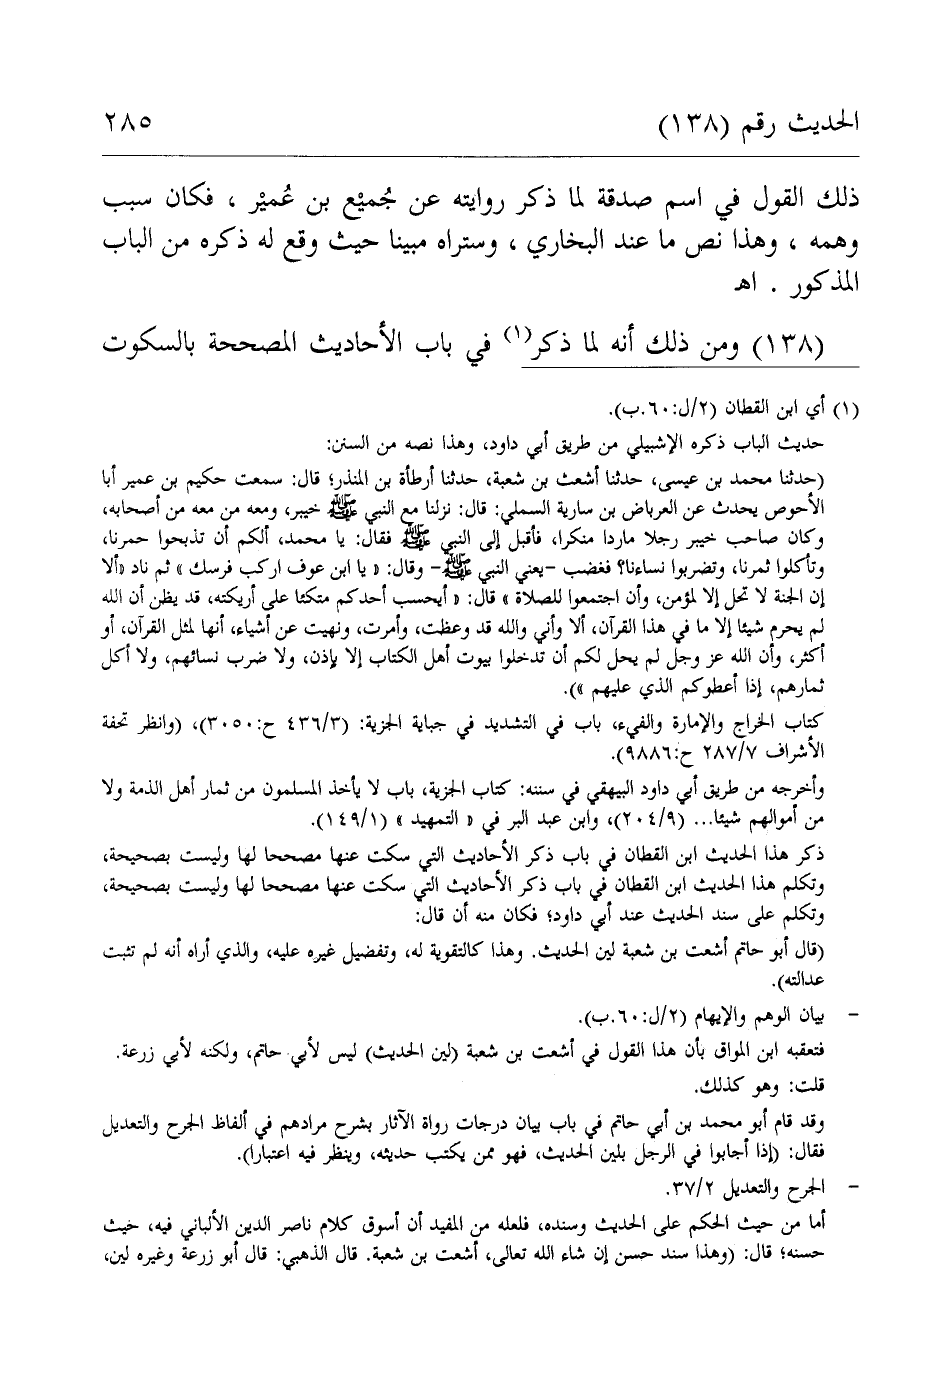 الحديث رقم (١٣٨) ٢٨٥
ذلك القول في اسم صدقة لما ذكر روايته عن جُميْع بن عُميْر ، فكان سبب
وهمه ، وهذا نص ما عند البخاري ، وستراه مبينا حيث وقع له ذكره من الباب
المذكور . اهـ
(١٣٨) ومن ذلك أنه لما ذكر(١) في باب الأحاديث المصححة بالسكوت
(١) أي ابن القطان (٢/ل:٦٠.ب).
حديث الباب ذكره الإشبيلي من طريق أبي داود، وهذا نصه من السنن:
(حدثنا محمد بن عيسى، حدثنا أشعث بن شعبة، حدثنا أرطأة بن المنذر؛ قال: سمعت حكيم بن عمير أبا
الأحوص يحدث عن العرباض بن سارية السملي: قال: نزلنا مع النبي ﷺ خيبر، ومعه من معه من أصحابه،
وكان صاحب خيبر رجلا ماردا منكرا، فأقبل إلى النبي ﷺ فقال: يا محمد، ألكم أن تذبحوا حمرنا،
وتأكلوا ثمرنا، وتضربوا نساءنا؟ فغضب -يعني النبي ﷺ- وقال: « يا ابن عوف اركب فرسك » ثم ناد «ألا
إن الجنة لا تحل إلا لمؤمن، وأن اجتمعوا للصلاة » قال: « أيحسب أحدكم متكئا على أريكته، قد يظن أن الله
لم يحرم شيئا إلا ما في هذا القرآن، ألا وأني والله قد وعظت، وأمرت، ونهيت عن أشياء، أنها لمثل القرآن، أو
أكثر، وأن الله عز وجل لم يحل لكم أن تدخلوا بيوت أهل الكتاب إلا بإذن، ولا ضرب نسائهم، ولا أكل
ثمارهم، إذا أعطوكم الذي عليهم »).
كتاب الخراج والإمارة والفيء، باب في التشديد في جباية الجزية: (٤٣٦/٣ ح:٣٠٥٠)، (وانظر تحفة
الأشراف ٢٨٧/٧ ح:٩٨٨٦).
وأخرجه من طريق أبي داود البيهقي في سننه: كتاب الجزية، باب لا يأخذ المسلمون من ثمار أهل الذمة ولا
من أموالهم شيئا... (٢٠٤/٩)، وابن عبد البر في « التمهيد » (١٤٩/١).
ذكر هذا الحديث ابن القطان في باب ذكر الأحاديث التي سكت عنها مصححا لها وليست بصحيحة،
وتكلم هذا الحديث ابن القطان في باب ذكر الأحاديث التي سكت عنها مصححا لها وليست بصحيحة،
وتكلم على سند الحديث عند أبي داود؛ فكان منه أن قال:
(قال أبو حاتم أشعت بن شعبة لين الحديث. وهذا كالتقوية له، وتفضيل غيره عليه، والذي أراه أنه لم تثبت
عدالته).
- بيان الوهم والإيهام (٢/ل:٦٠.ب).
فتعقبه ابن المواق بأن هذا القول في أشعت بن شعبة (لين الحديث) ليس لأبي حاتم، ولكنه لأبي زرعة.
قلت: وهو كذلك.
وقد قام أبو محمد بن أبي حاتم في باب بيان درجات رواة الآثار بشرح مرادهم في ألفاظ الجرح والتعديل
فقال: (إذا أجابوا في الرجل بلين الحديث، فهو ممن يكتب حديثه، وينظر فيه اعتبارا).
- الجرح والتعديل ٣٧/٢.
أما من حيث الحكم على الحديث وسنده، فلعله من المفيد أن أسوق كلام ناصر الدين الألباني فيه، حيث
حسنه؛ قال: (وهذا سند حسن إن شاء الله تعالى، أشعت بن شعبة. قال الذهبي: قال أبو زرعة وغيره لين،